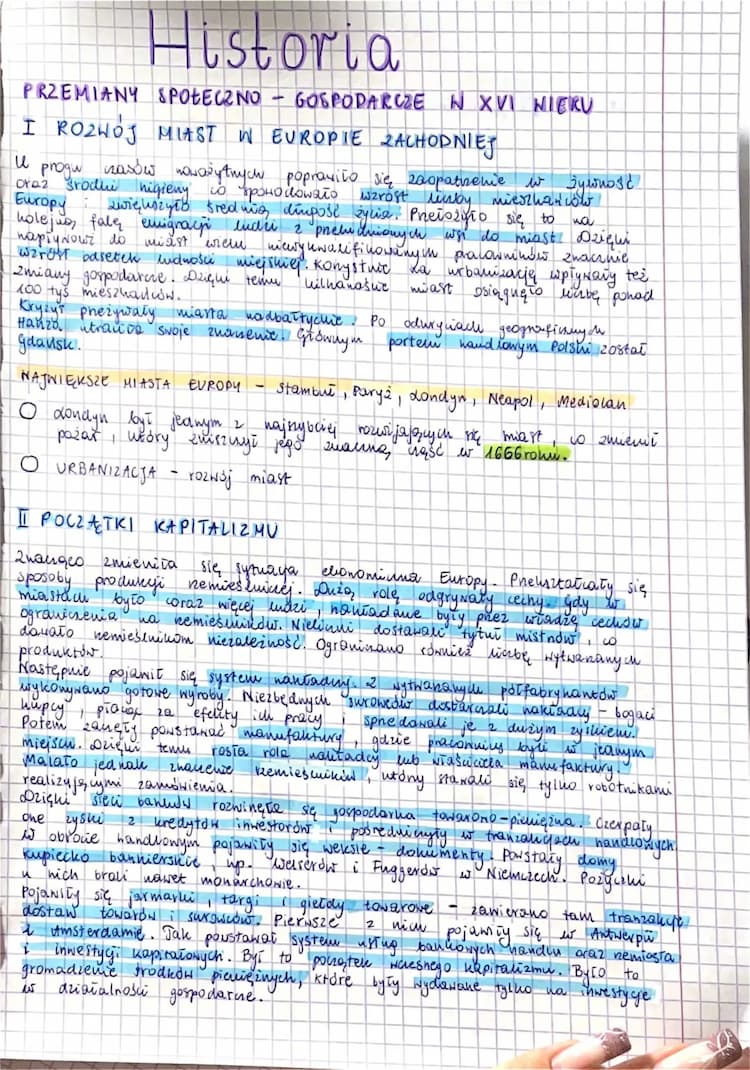 Historia
PRZEMIANY SPOŁECZNO - GOSPODARCZE W XVI WIEKU
I ROZWÓJ MIAST W EUROPIE ZACHODNIEJ
U progu czasów nowożytnych poprawiło się zaopatrzenie w żywność
oraz środki higieny co spowodowało wzrost liczby mieszkańców
Europy i zwiększyło średnią długość życia. Przełożyło się to na
kolejną falę emigracji ludzi z przeludnionych wsi do miast. Dzięki
napływowi do miast wielu niewykwalifikowanych pracowników znacznie
wzrósł odsetek ludności miejskiej. Korzystnie na urbanizację wpływały też
zmiany gospodarcze. Dzięki temu kilkanaście miast osiągnęło liczbę ponad
100 tyś mieszkańców.
Kryzys przeżywały miasta nadbałtyckie. Po odkryciach geograficznych
Hanza utraciła swoje znaczenie. Głównym portem handlowym Polski został
Gdańsk.
NAJWIĘKSZE MIASTA EUROPY - Stambuł, Paryż, Londyn, Neapol, Mediolan
Londyn był jednym z najszybciej rozwijających się miast, co zmienił
pożar, który zniszczył jego znaczną część w 1666 roku.
URBANIZACJA - rozwój miast
II POCZĄTKI KAPITALIZMU
Znacząco zmieniła się sytuacja ekonomiczna Europy. Przekształcały się
sposoby produkcji rzemieślniczej. Dużą rolę odgrywały cechy. Gdy w
miastach było coraz więcej ludzi, nakładane były przez władzę cechów
ograniczenia na rzemieślników. Nieliczni dostawali tytuł mistrzów, co
dawało rzemieślnikom niezależność. Ograniczano również liczbę wytwarzanych
produktów.
Następnie pojawił się system nakładczy. Z wytwarzanych półfabrykantów
wykonywano gotowe wyroby. Niezbędnych surowców dostarczali nakładcy - bogaci
kupcy, płacąc za efekty ich pracy i sprzedawali je z dużym zyskiem.
Potem zaczęły powstawać manufaktury, gdzie pracownicy byli w jednym
miejscu. Dzięki temu rosła rola nakładcy lub właściciela manufaktury.
Malało jednak znaczenie rzemieślników, którzy stawali się tylko robotnikami
realizującymi zamówienia.
Dzięki sieci banków rozwinęła się gospodarka towarowo-pieniężna. Czerpały
one zyski z kredytów inwestorów i pośredniczyły w tranzakcjach handlowych.
W obrocie handlowym pojawiły się weksle - dokumenty. Powstały domy
kupiecko bankierskie, np. Welserów i Fuggerów w Niemczech. Pożyczki
u nich brali nawet monarchowie.
Pojawiły się jarmarki, targi i giełdy towarowe - zawierano tam tranzakcje
dostaw towarów i surowców. Pierwsze z nich pojawiły się w Antwerpii
i Amsterdamie. Tak powstawał system usług bankowych handlu oraz rzemiosła
i inwestycji kapitałowych. Był to początek wczesnego kapitalizmu. Było to
gromadzenie środków pieniężnych, które były wydawane tylko na inwestycje
w działalności gospodarcze.